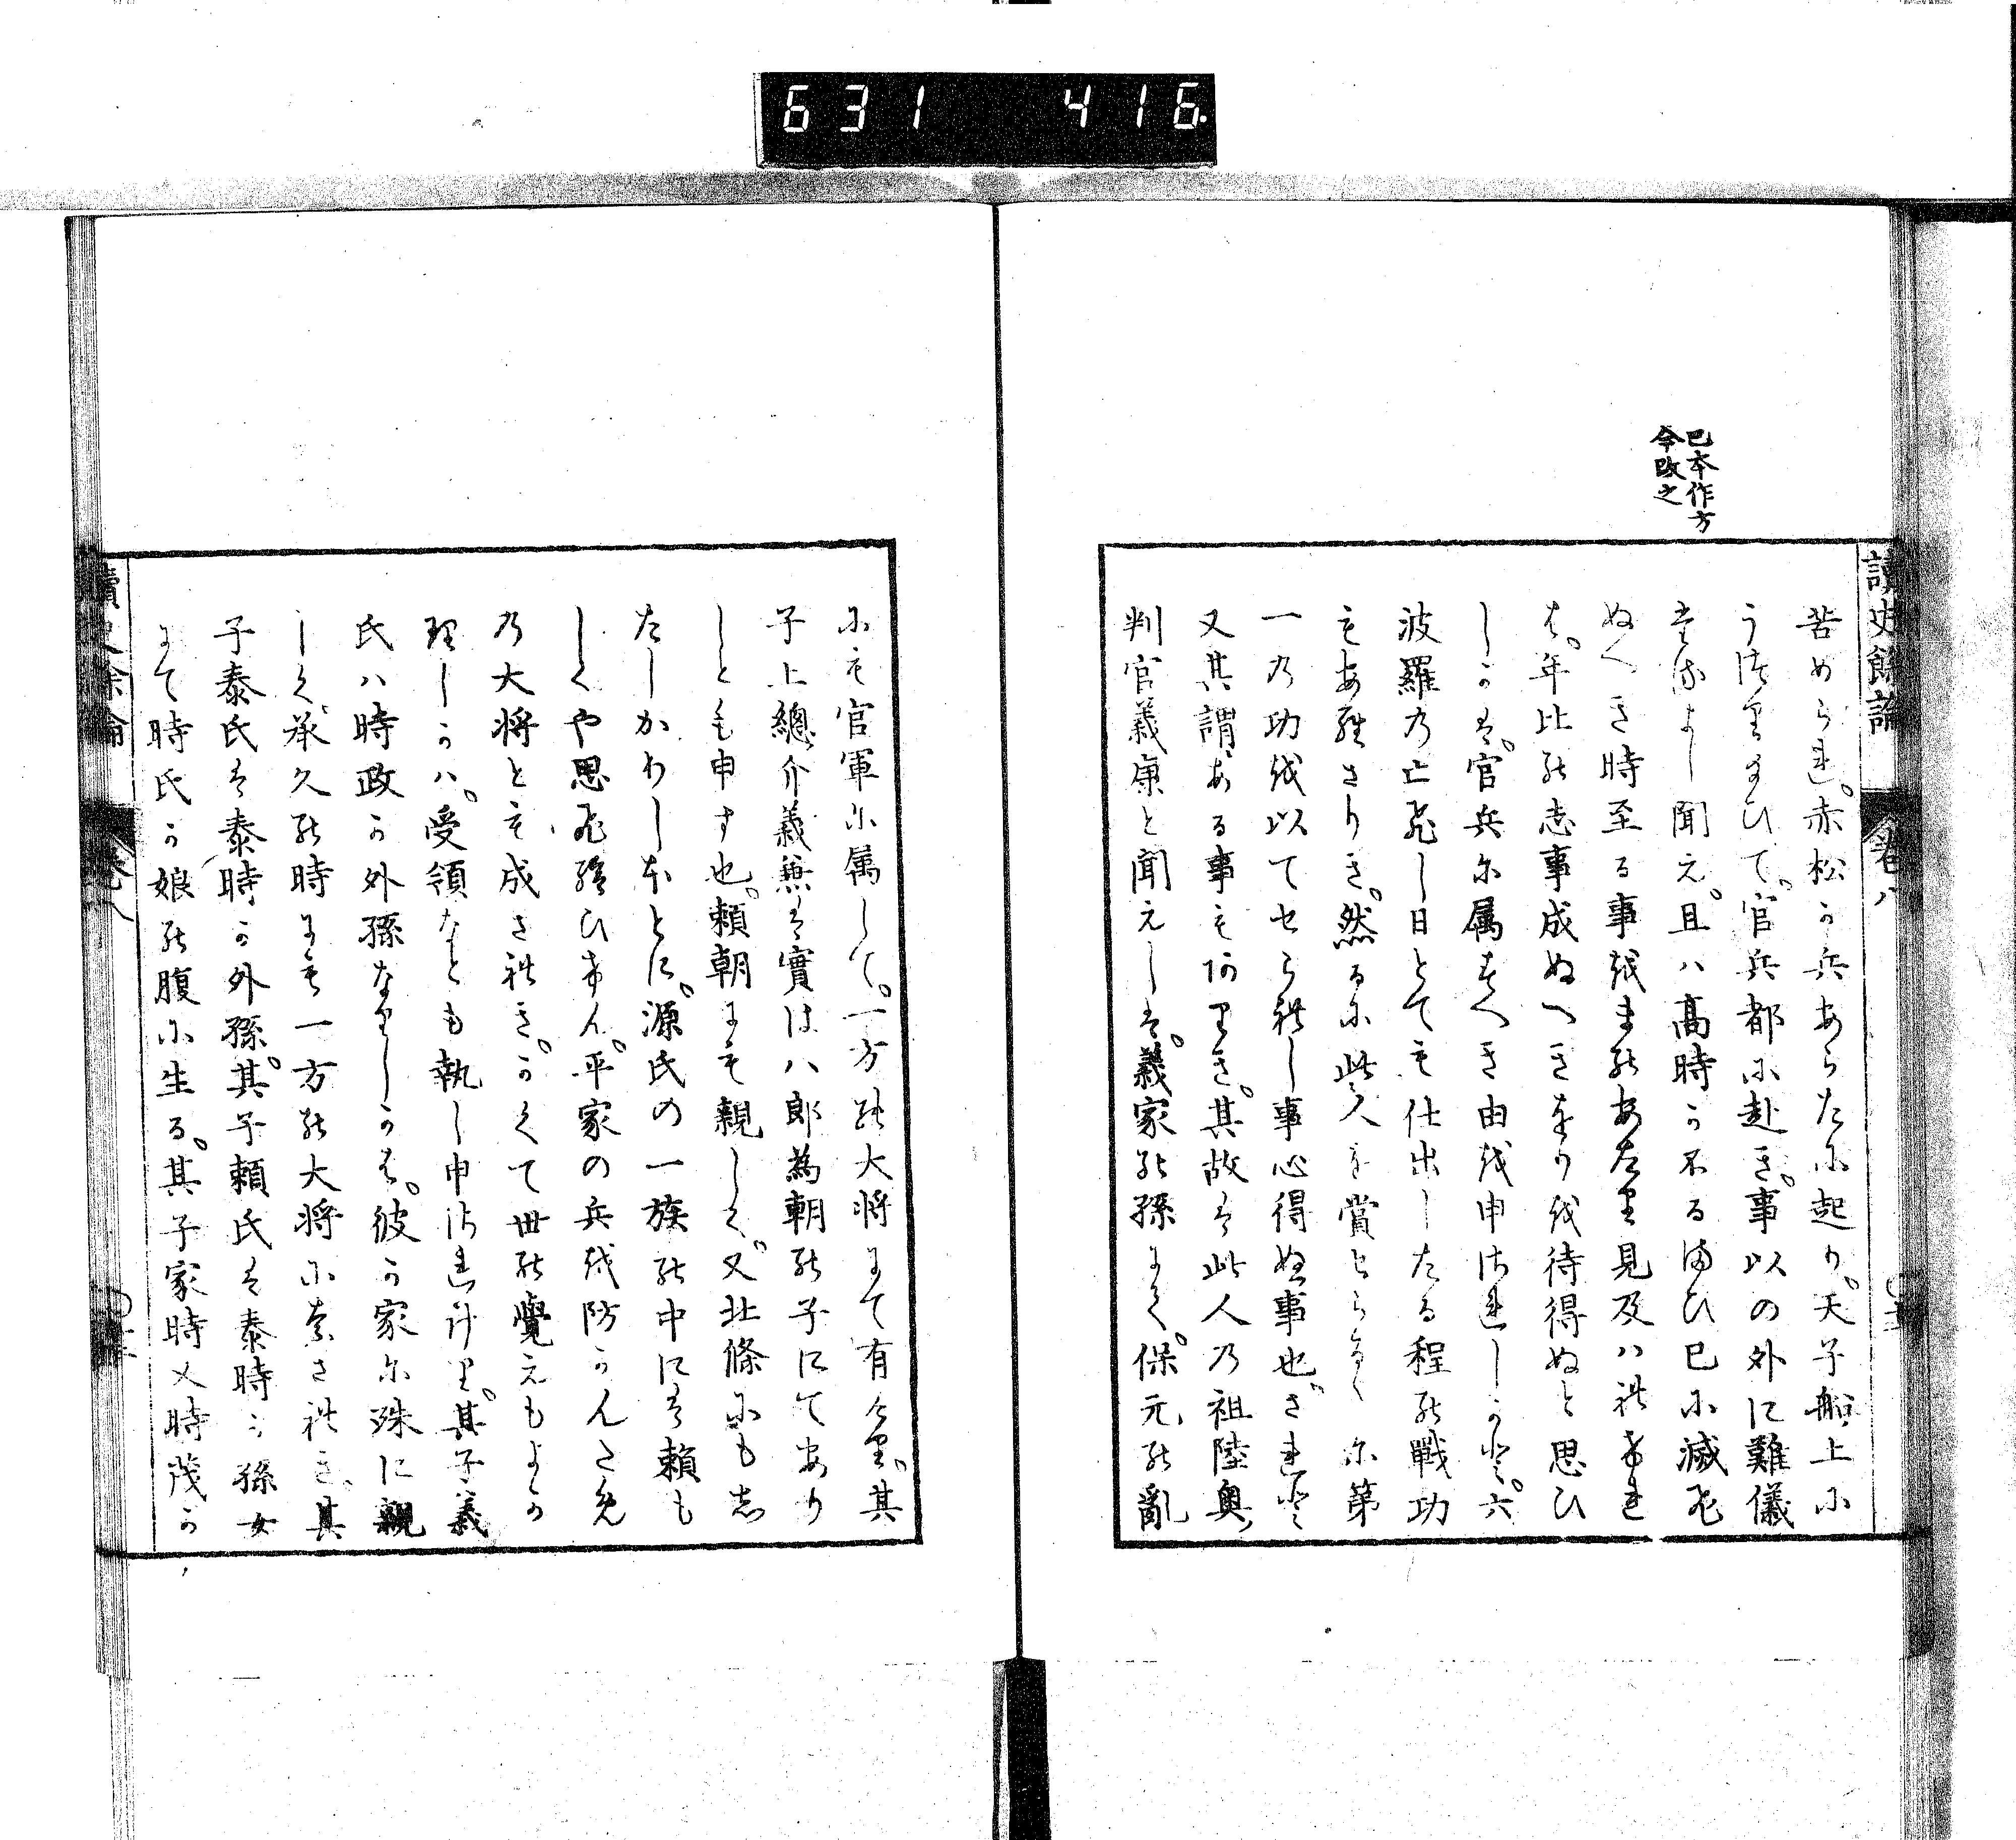 631 416
巳本作方
今改之
讀史餘論 卷八
苦められ。赤松か兵あらたに起り。天子船上に
うつり給ひて。官兵都に赴き。事以の外に難儀
するよし聞え。且ハ高時か不るまひ巳に滅ひ
ぬへき時至る事をまのあたり見及ハれけれ
は。年比の志事成ぬへきをりを待得ぬと思ひ
しかは。官兵に属すへき由を申されしかと。六
波羅の亡ひし日とても仕出したる程の戰功
もあらさりき。然るに此人を賞せらるゝに第
一の功を以てせられし事心得ぬ事也。されと
又其謂ある事も有りき。其故は此人の祖陸奥
判官義康と聞えしは。義家の孫にて。保元の亂
にも官軍に属して。一方の大将にて有けり。其
子上總介義兼は實は八郎為朝の子にてあり
しとも申す也。頼朝にも親しく。又北條にもし
たしかりしほとに。源氏の一族の中には頼も
しくや思ひ給ひけん。平家の兵を防かんため
の大将とも成されき。かくて世の覺えもよか
りしかハ。受領なとも執し申されけり。其子義
氏ハ時政か外孫なりしかは。彼か家に殊に親
しく。承久の時にも一方の大将になされき。其
子泰氏は泰時か外孫。其子頼氏は泰時か孫女
にて時氏か娘の腹に生る。其子家時又時茂か
讀史餘論 卷八